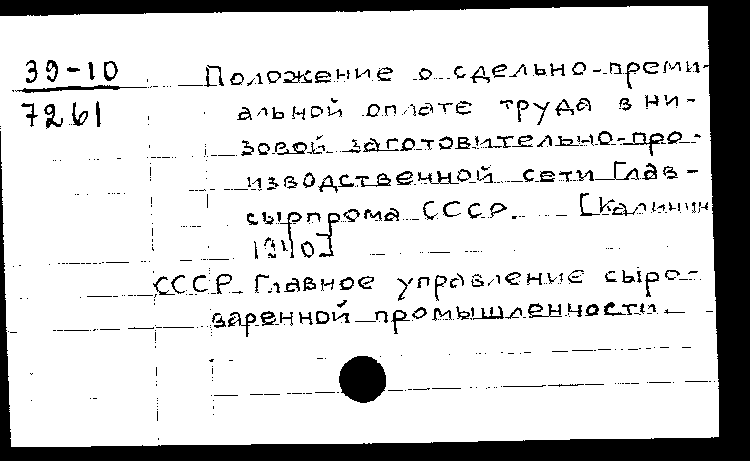 39-10
7261
Положение о сдельно-преми-
альной оплате труда в ни-
зовой заготовительно-про-
изводственной сети Глав-
сырпрома СССР. [Калинин
1940]
СССР. Главное управление сыро-
варенной промышленности.